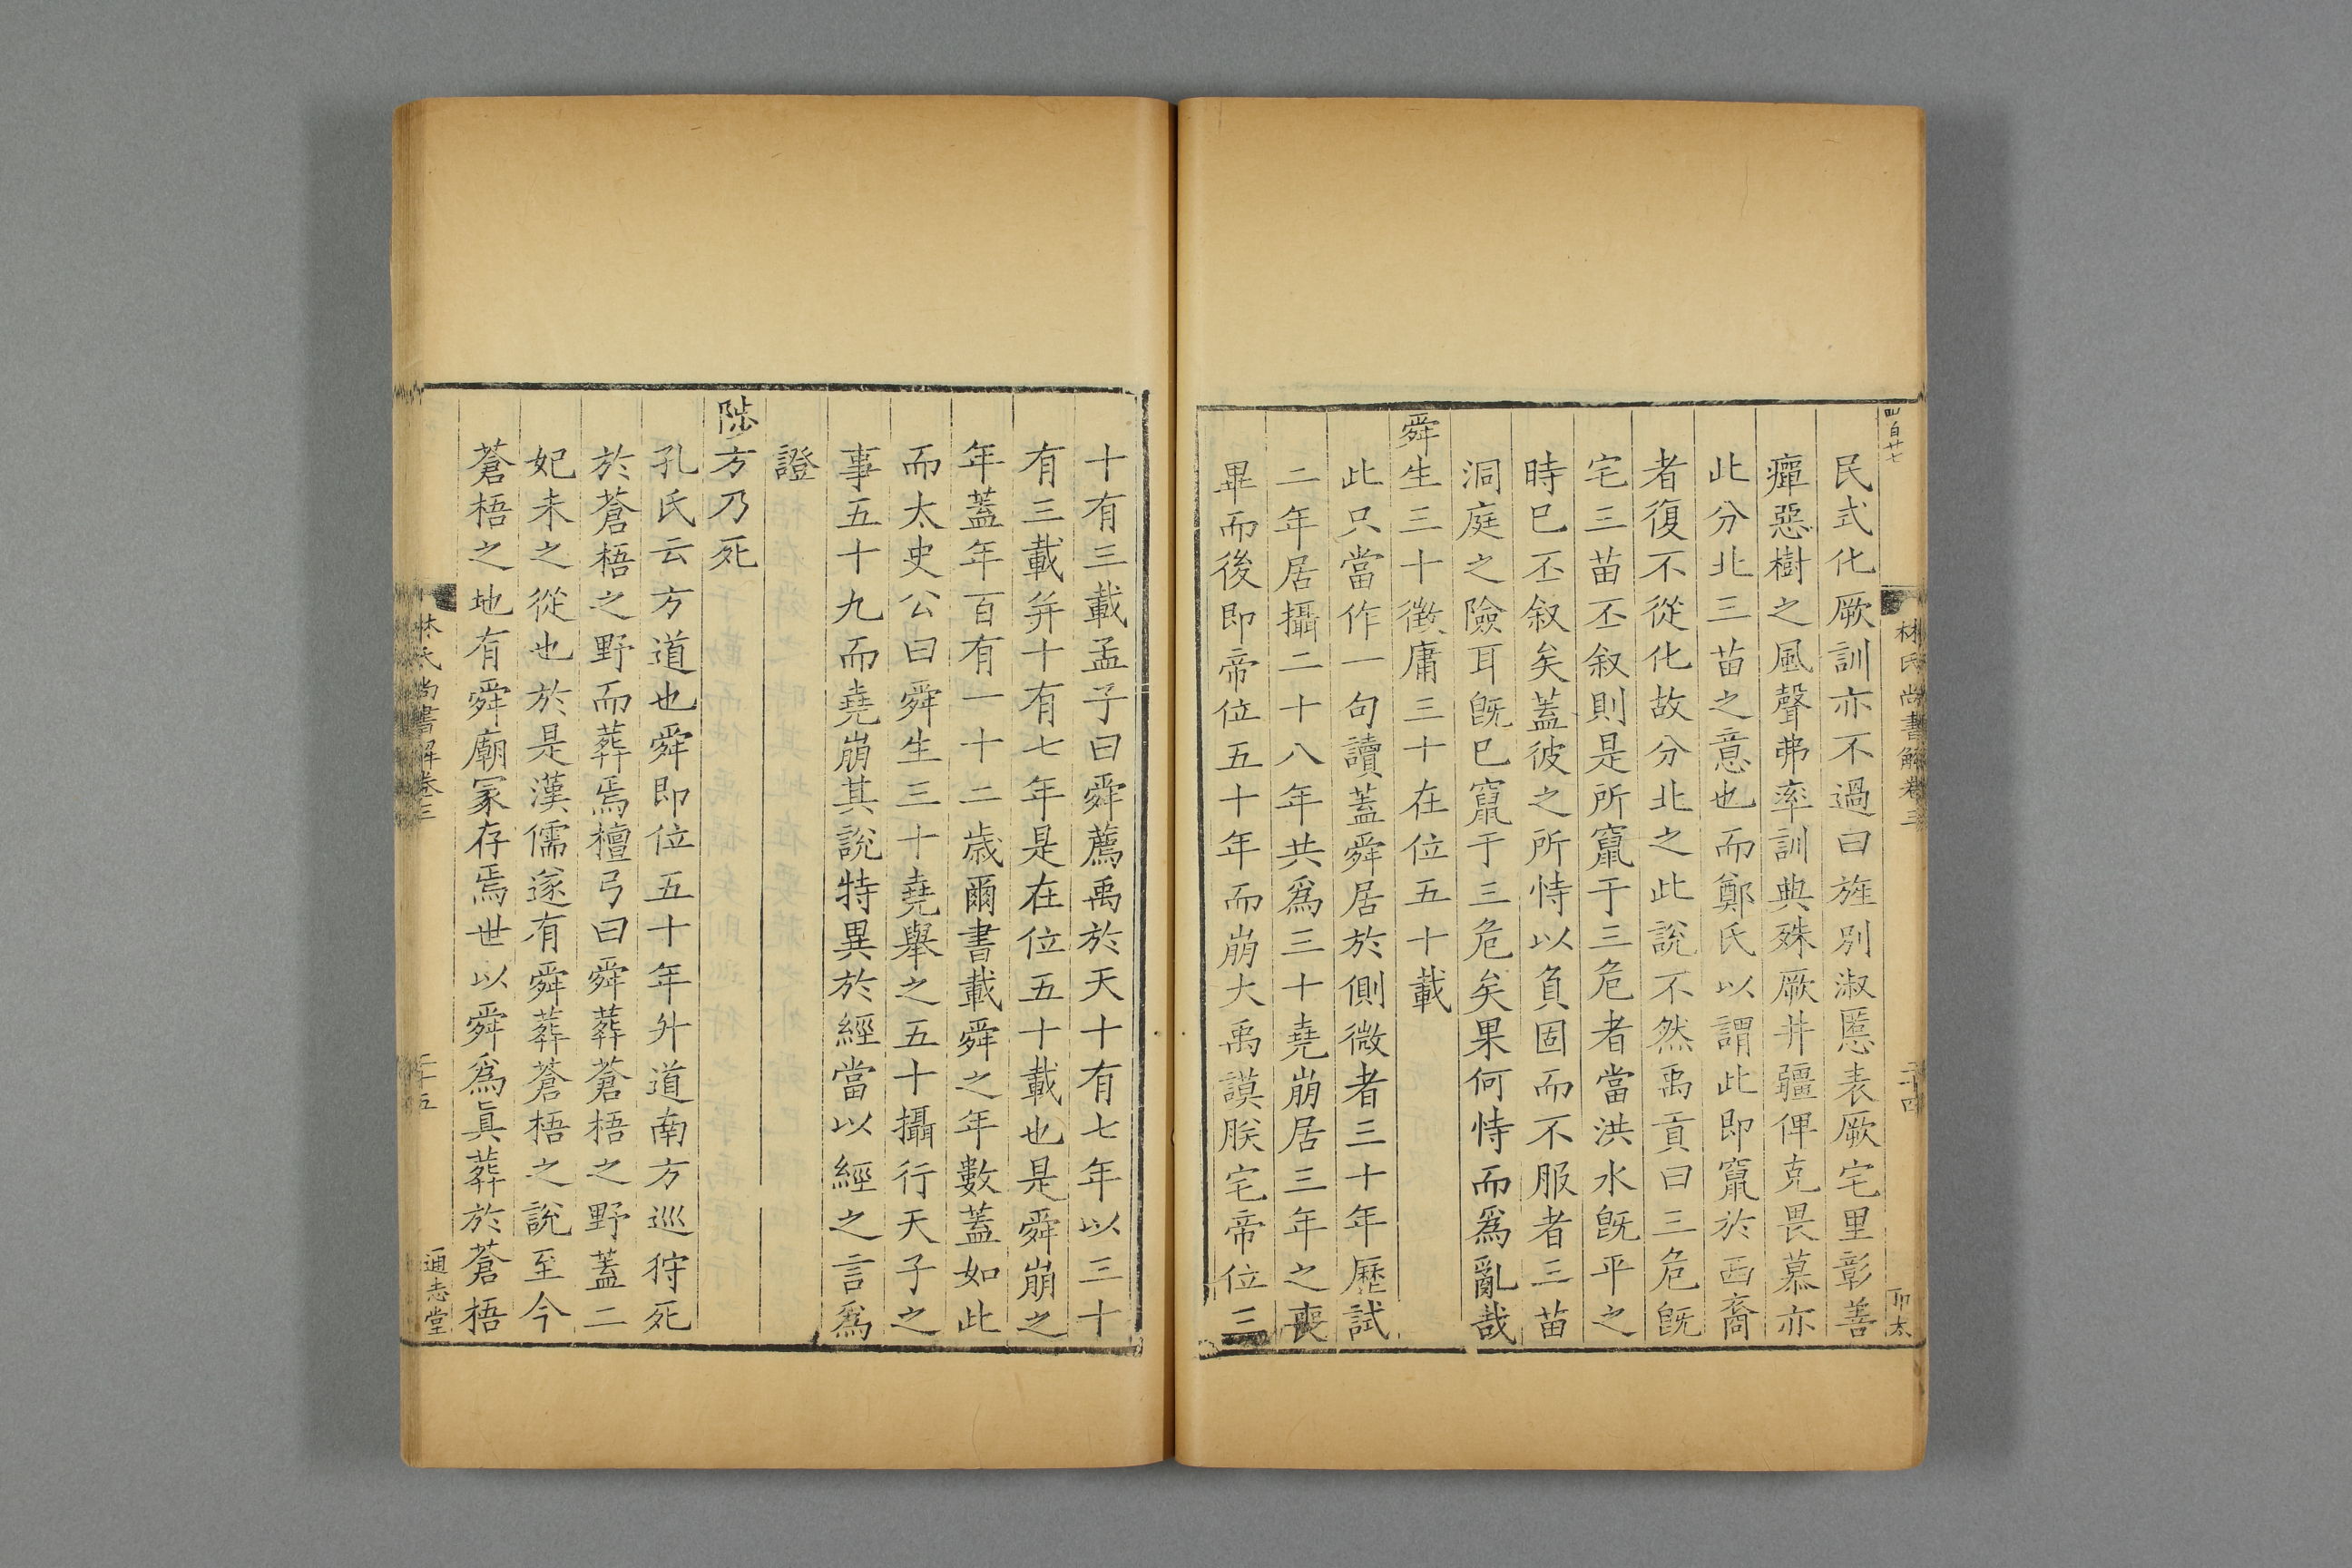 四百廿七
林氏尚書解卷三
二十四
卬太
民式化厥訓亦不過曰旌別淑慝表厥宅里彰善
癉惡樹之風聲弗率訓典殊厥井疆俾克畏慕亦
此分北三苗之意也而鄭氏以謂此即竄於西裔
者復不從化故分北之此說不然禹貢曰三危旣
宅三苗丕叙則是所竄于三危者當洪水旣平之
時已丕叙矣蓋彼之所恃以負固而不服者三苗
洞庭之險耳旣巳竄于三危矣果何恃而爲亂哉
舜生三十徵庸三十在位五十載
此只當作一句讀蓋舜居於側微者三十年歷試
二年居攝二十八年共爲三十堯崩居三年之喪
畢而後即帝位五十年而崩大禹謨朕宅帝位三
十有三載孟子曰舜薦禹於天十有七年以三十
有三載并十有七年是在位五十載也是舜崩之
年蓋年百有一十二歲爾書載舜之年數蓋如此
而太史公曰舜生三十堯舉之五十攝行天子之
事五十九而堯崩其說特異於經當以經之言爲
證
陟方乃死
孔氏云方道也舜即位五十年升道南方巡狩死
於蒼梧之野而葬焉檀弓曰舜葬蒼梧之野蓋二
妃未之從也於是漢儒遂有舜葬蒼梧之說至今
蒼梧之地有舜廟冢存焉世以舜爲眞葬於蒼梧
林氏尚書解卷三
二十五
通志堂